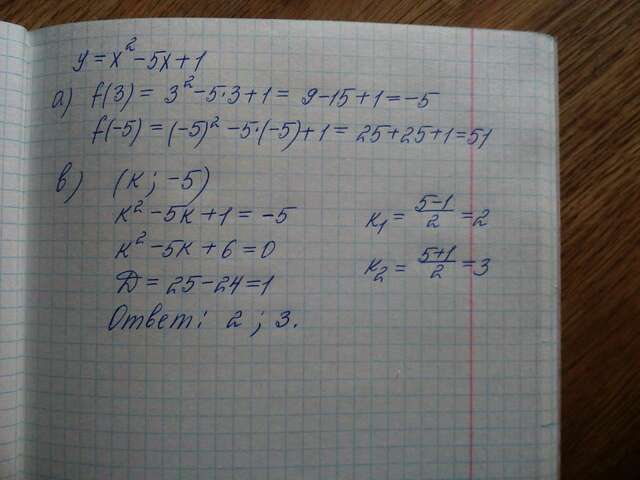 y = x² - 5x + 1
а) f(3) = 3² - 5·3 + 1 = 9 - 15 + 1 = -5
f(-5) = (-5)² - 5·(-5) + 1 = 25 + 25 + 1 = 51
в) (к ; -5)
к² - 5к + 1 = -5
к² - 5к + 6 = 0
Д = 25 - 24 = 1
к₁ = (5-1)/2 = 2
к₂ = (5+1)/2 = 3
Ответ: 2 ; 3.